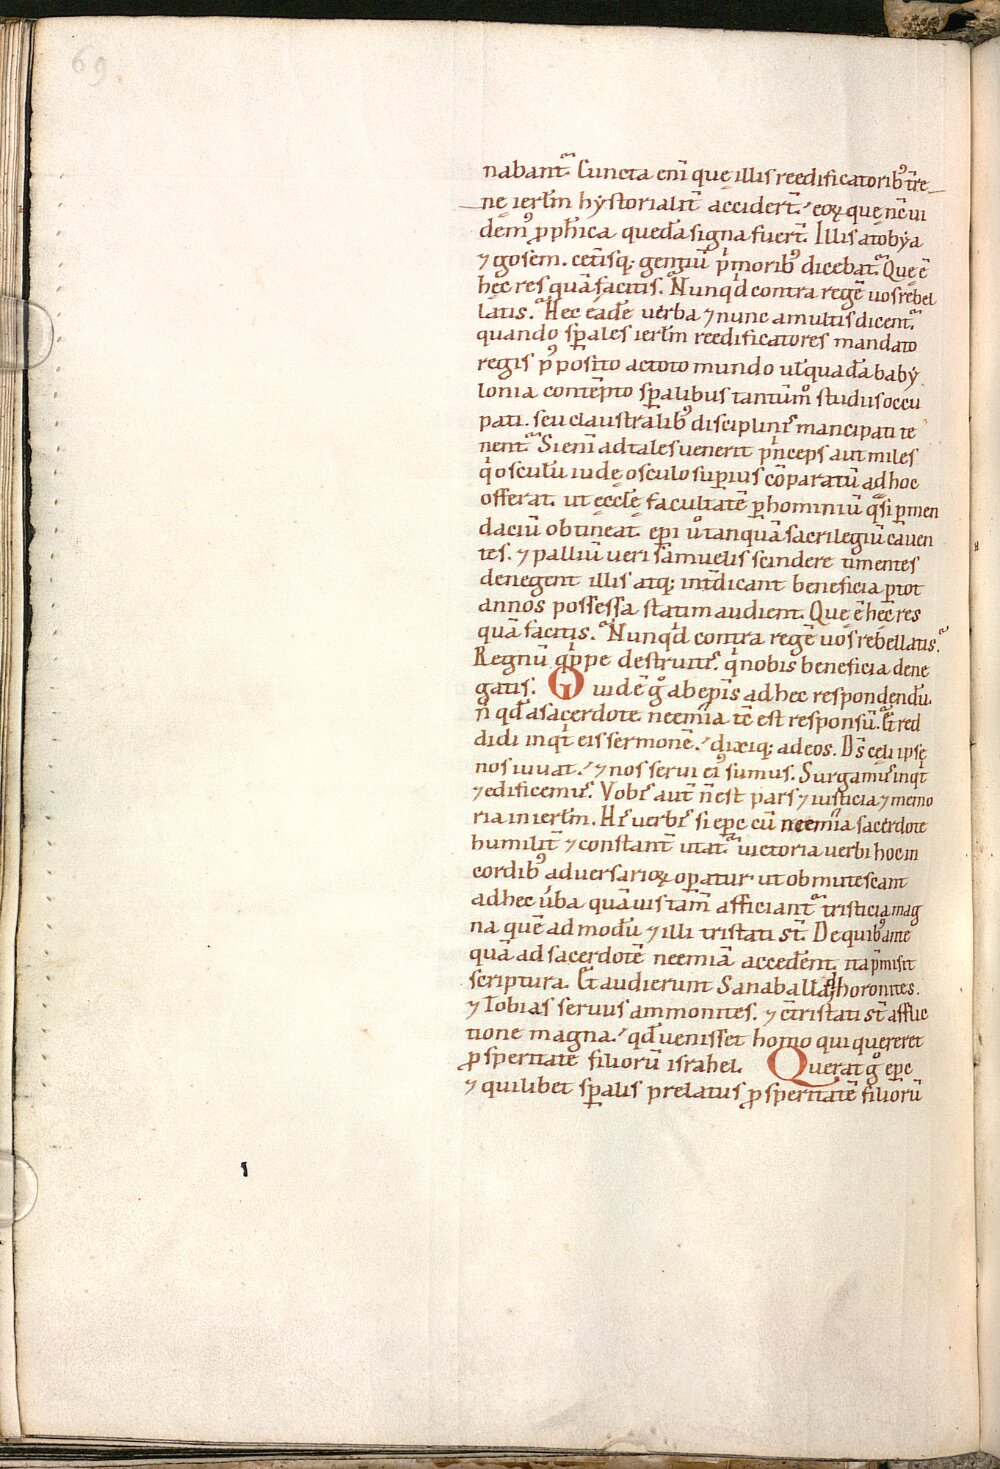 69
nabant᷑. Cuncta eni̅ que̜ illis reedificatorib᾿ t̅re
ne̜ ierl̅m hẏstorialit̅ accider̅t. eoꝝ que̜ nc̅ ui
dem᾿ ꝓph̅ica queda̅ signa fuer̅t. Illis atobẏa
⁊ gosem. cet̅isq; gentiu̅ p̅morib᾿ dicebat᷑. Que e̅
he̜c res qua̅ facitis. Nunqd̅ contra rege̅ uos rebel
latis. Hec eade̅ uerba ⁊ nunc a multis dicent᷑.
quando sp̅ales ierl̅m reedificatores mandato
regis p᾿posito ac toto mundo ul̅ quada̅ babẏ
lonia conte̅pto sp̅alibus tantum̊ studiis occu
pati. seu claustralib᾿ discipliniˢ mancipati te
nent᷑. Si eni̅ ad tales uenerit p̅nceps aut miles
qͥ osculu̅ iude̜ osculo superius co̅paratu̅ ad hoc
offerat. ut e̜ccl̅e̜ facultate̅ ꝑ hominiu̅ qͣsi ꝑ men
daciu̅ obtineat. ep̅i u̾ tanqua̅ sacrilegiu̅ cauen
tes. ⁊ palliu̅ ueri samuelis scindere timentes
denegent illis atq; int̅dicant beneficia ꝑ tot
annos possessa statim audient. Que̜ e̅ he̜c res
qua̅ facitis. Nunqd̅ contra rege̅ uos rebellatis.
Regnu̅ qͥppe destruitiˢ. qͥ nobis beneficia dene
gatis. Quid e̅ gͦ ab ep̅is ad hec respondendu̅.
n̅ qd̅ a sacerdote neemia te̅ est responsu̅. Et red
didi inqͥt eis sermone̅. dixiq; ad eos. Ds̅ celi ipse̜
nos iuuat. ⁊ nos serui ei᾿ sumus. Surgam᾿ inqͥt
⁊ edificem᾿. Vobiˢ aut̅ n̅ est pars ⁊ iusticia ⁊ memo
ria in ierl̅m. Hiˢ uerbiˢ si ep̅c cu̅ neemia sacerdote
humilit̅ ⁊ constant̅ utat᷑. uictoria uerbi hoc in
cordib᾿ aduersarioꝝ operatur. ut obmutescant
ad hec u̾ba quauis tam̅ afficiant᷑ tristicia mag
na que̅ ad modu̅ ⁊ illi tristati st̅. De quib᾿ ante
qua̅ ad sacerdote̅ neemia̅ acceder̅et. ita p̅misit
scriptura. Et audierunt Sanaballath horonites.
⁊ Tobias seruus ammonites. ⁊ co̅tristati st̅ afflic
tione magna. qd̅ uenisset homo qui quereret
ꝓsperitate̅ filioru̅ israhel. Querat gͦ ep̅c
⁊ quilibet sp̅alis prelatus ꝓsperitate̅ filioru̅